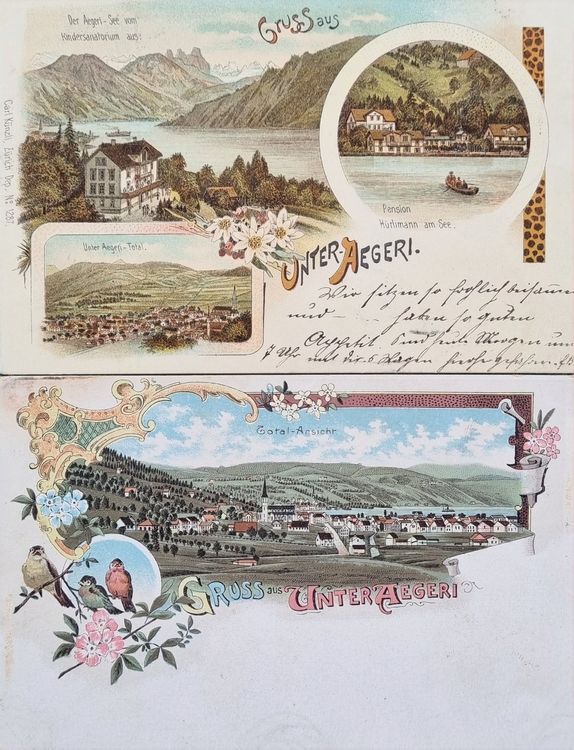 Der Aegeri-See vom
Kindersanatorium aus:
Gruss aus
Carl Künzli, Zürich Dep. No 1287.
Pension
Hürlimann am See.
Unter Aegeri-Total.
UNTER-AEGERI.
Wir sitzen so fröhlich beisamen
und — haben so guten
Appetit
7 Uhr
Total-Ansicht
GRUSS aus UNTER AEGERI